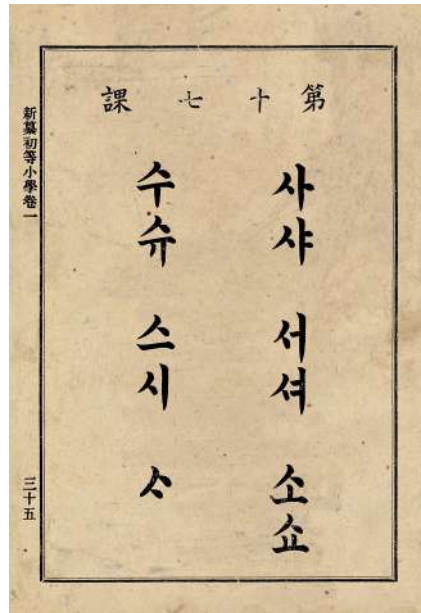 第十七課
사샤 서셔 소쇼
수슈 스시 ᄉᆞ
新纂初等小學卷一
三十五